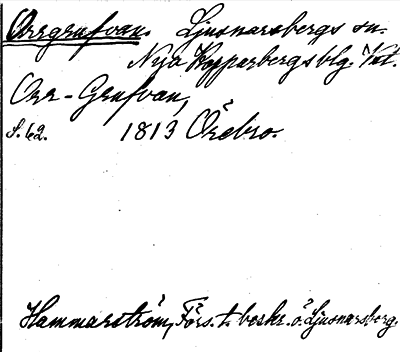 Orrgrufvan. Ljusnarsbergs sn.
Nya Kopparbergs blg. Vst.
Orr-Grufvan,
S. 62. 1813 Örebro.
Hammarström, Förs. t. beskr. ö. Ljusnarsberg.